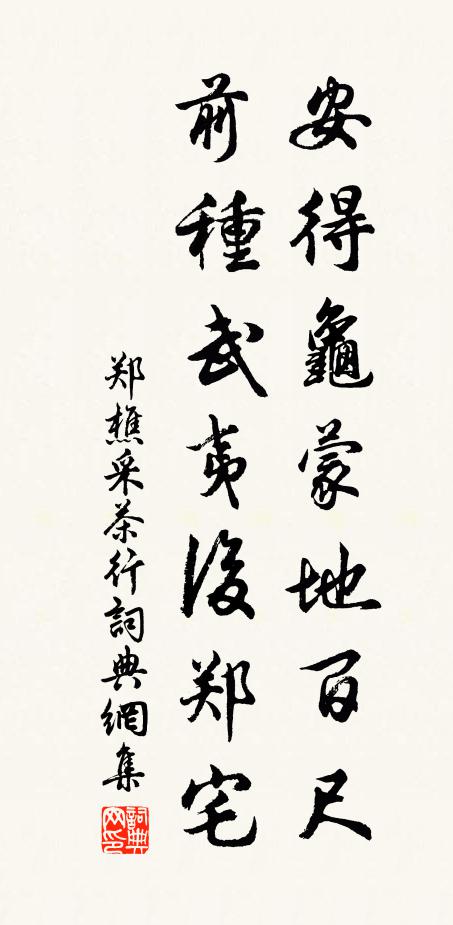 安得龜蒙地百尺
前種武夷後郑宅
郑樵采茶行詞典網集
詞典網印